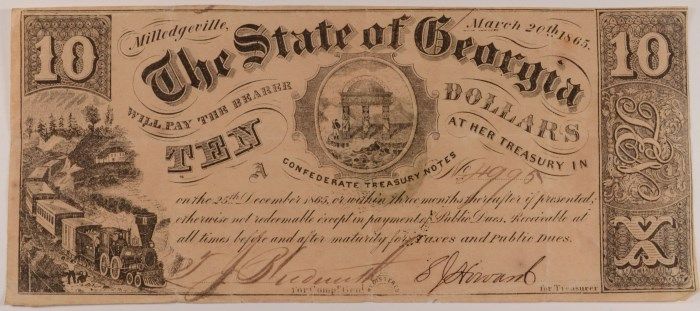 Milledgeville, March 20th, 1865.
10 10
The State of Georgia
WILL PAY THE BEARER
TEN DOLLARS
AT HER TREASURY IN
A
CONFEDERATE TREASURY NOTES
No. 4995
on the 25th December 1865, or within three months thereafter if presented;
otherwise not redeemable except in payment of Public Dues. Receivable at
all times before and after maturity for Taxes and Public Dues.
X
For Comp. Genl. for Treasurer